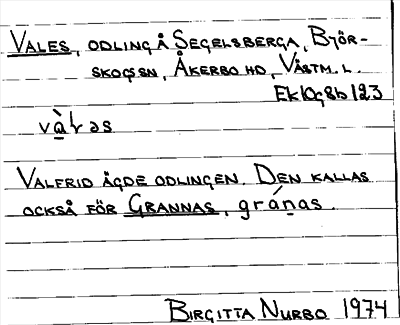 VALES, ODLING Å SEGELSBERGA, BJÖR-
SKOGSSN, ÅKERBO HD, VÄSTM. L.
Ek 10g8b 123
và̱ɫəs
VALFRID ÄGDE ODLINGEN. DEN KALLAS
OCKSÅ FÖR GRANNAS, gráṉas.
BIRGITTA NURBO 1974